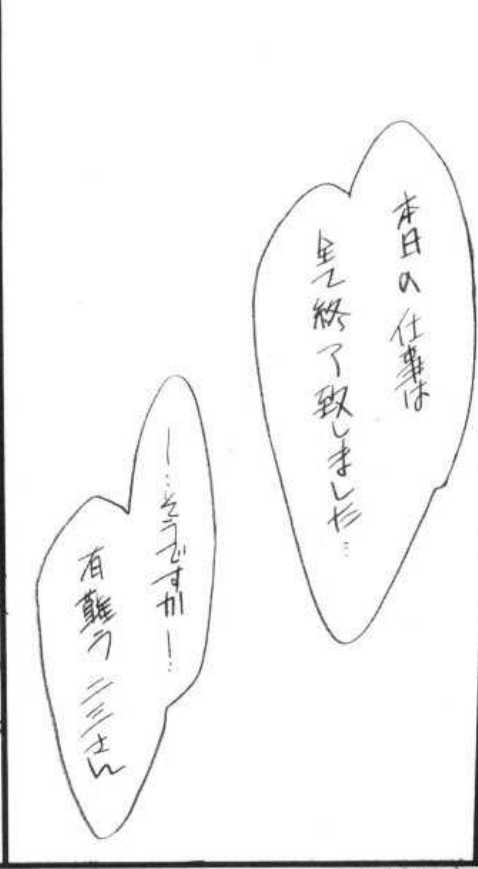 本日の仕事は
全て終了致しました…
ー…そうですかー…
有難う二三さん